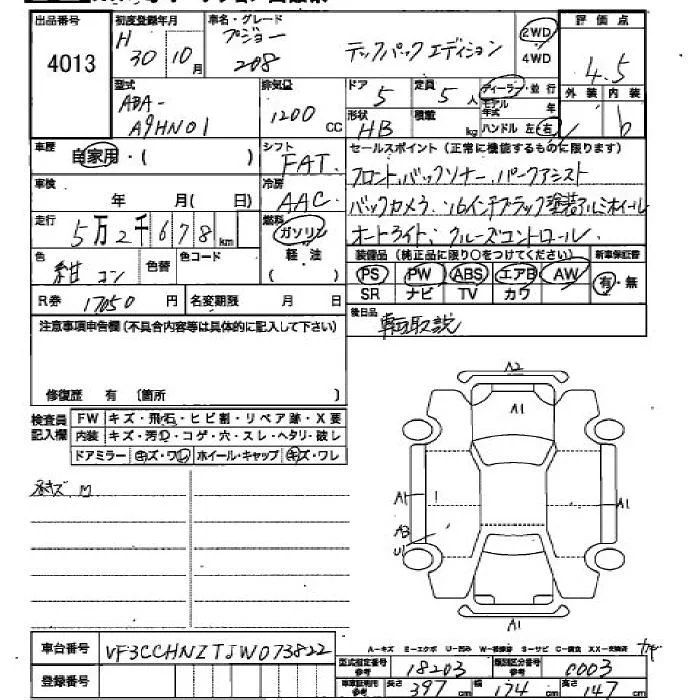 出品番号 4013
初度登録年月 H 30 10月
車名・グレード プジョー 208 テックパックエディション
2WD 4WD
評価点 4.5
外装 内装 b
型式 ABA- A9HN01
排気量 1200 CC
ドア 5 定員 5人
形状 HB 積載 kg
ディーラー・並行
モデル年式 年
ハンドル 左・右
車歴 自家用・( )
シフト FAT
セールスポイント (正常に機能するものに限ります)
フロント、バックソナー、パークアシスト
バックカメラ、16インチブラック塗装アルミホイール
オートライト、クルーズコントロール、
車検 年 月( 日)
冷房 AAC
走行 5万2千678km
燃料 ガソリン 軽油 ( )
色 紺 コン 色替 色コード
装備品 (純正品に限り○をつけてください) 新車保証書
PS PW ABS エアB AW 有・無
SR ナビ TV カワ
R券 17050円 名変期限 月 日
後日品 輌取説
注意事項申告欄 (不具合内容等は具体的に記入して下さい)
修復歴 有 (箇所 )
検査員記入欄
FW キズ・飛石・ヒビ割・リペア跡・X要
内装 キズ・汚し・コゲ・穴・スレ・ヘタリ・破レ
ドアミラー キズ・ワレ ホイール・キャップ キズ・ワレ
A2
A1
A1
A1
A3
U1
A1
A1
車台番号 VF3CCHNZTJW073822
登録番号
A-キズ E-エクボ U-凹み W-補修跡 S-サビ C-腐食 XX-交換済
型式指定番号 参考 18203 類別区分番号 参考 0003
車庫証明用 参考 長さ 397cm 幅 174cm 高さ 147cm